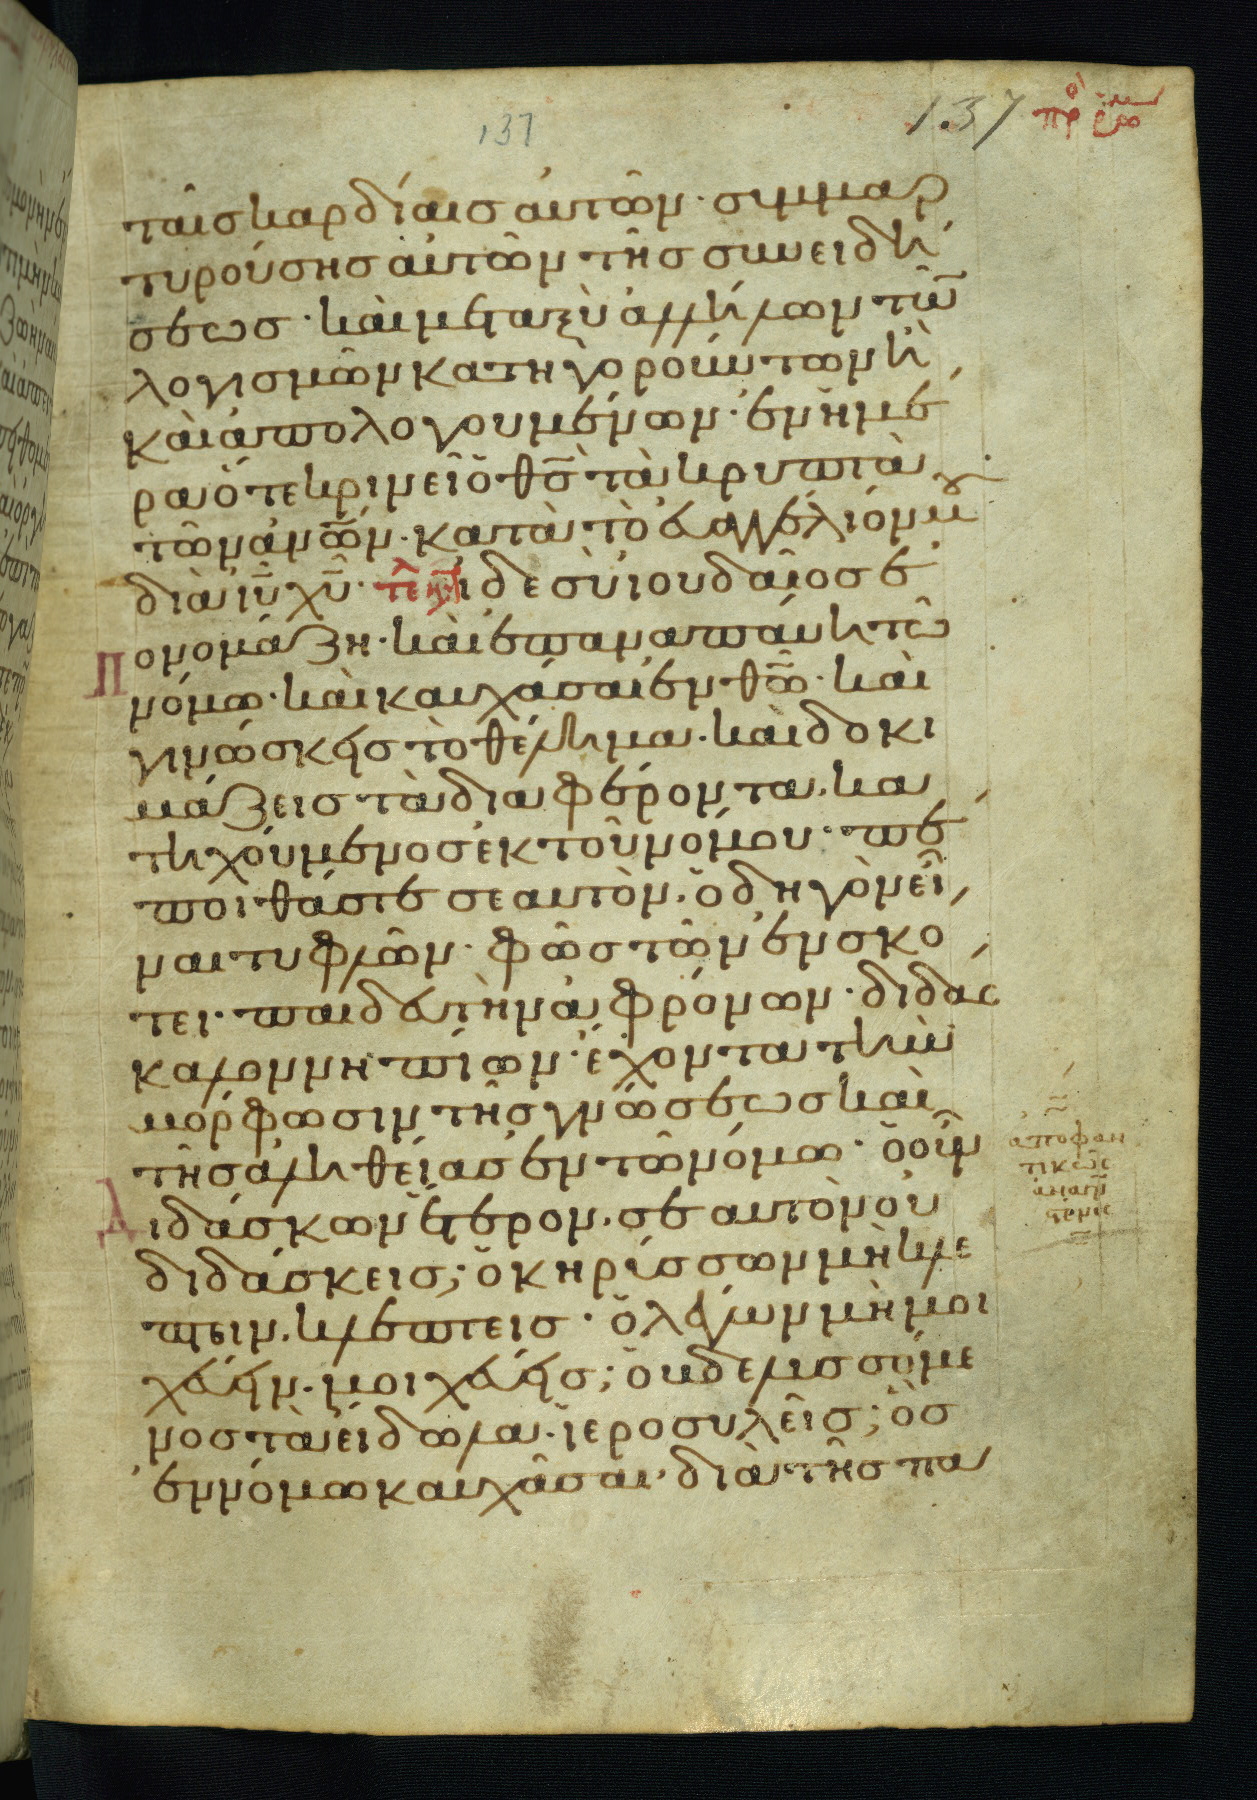 137
137 πρ ρωμ
ταῖς καρδίαις αὐτῶν· συμμαρ
τυρούσης αὐτῶν τῆς συνειδή
σεως· καὶ μεταξὺ ἀλλήλων τῶ
λογισμῶν κατηγορούντων ἢ
καὶ ἀπολογουμένων· ἐν ἡμέ
ρα ὅτε κρινεῖ ὁ θς τὰ κρυπτὰ
τῶν ἀνων· κατὰ τὸ εὐαγγέλιόν μου
διὰ ιυ χυ· τε ἴδε σὺ ἰουδαῖος ἐ
ονομάζη· καὶ ἐπαναπάυη τῶ
νόμω· καὶ καυχάσαι ἐν θω· καὶ
γινώσκεις τὸ θέλημα· καὶ δοκι
μάζεις τὰ διαφέροντα· κα
τηχούμενος ἐκ τοῦ νόμου· πέ
ποιθάς τε σεαυτὸν· ὁδηγὸν εἶ
ναι τυφλῶν· φῶς τῶν ἐν σκο
τει· παιδευτὴν ἀφρόνων· διδάσ
καλον νηπίων· ἔχοντα τὴν
μόρφωσιν τῆς γνώσεως καὶ
τῆς ἀληθείας ἐν τῶ νόμω· ὁ οὖν
διδάσκων ἕτερον· σεαυτὸν οὐ
διδάσκεις; ὁ κηρύσσων μὴ κλέ
πτειν· κλέπτεις· ὁ λέγων μὴ μοι
χεύειν· μοιχεύεις; ὁ βδελυσσόμε
νος τὰ εἴδωλα· ἱεροσυλεῖς; ὃς
ἐν νόμω καυχᾶσαι· διὰ τῆς πα
ἀποφαν
τικῶς